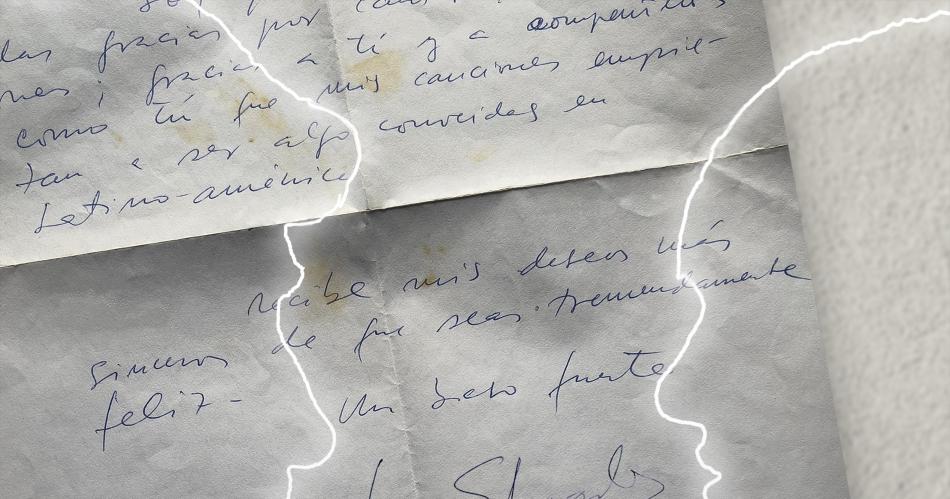 las gracias por
nes ; gracias a tí y a compañeros
como tú que mis canciones empie-
tan a ser algo conocidas en
Latino-américa
recibe mis deseos más
sinceros de que seas tremendamente
feliz- Un beso fuerte